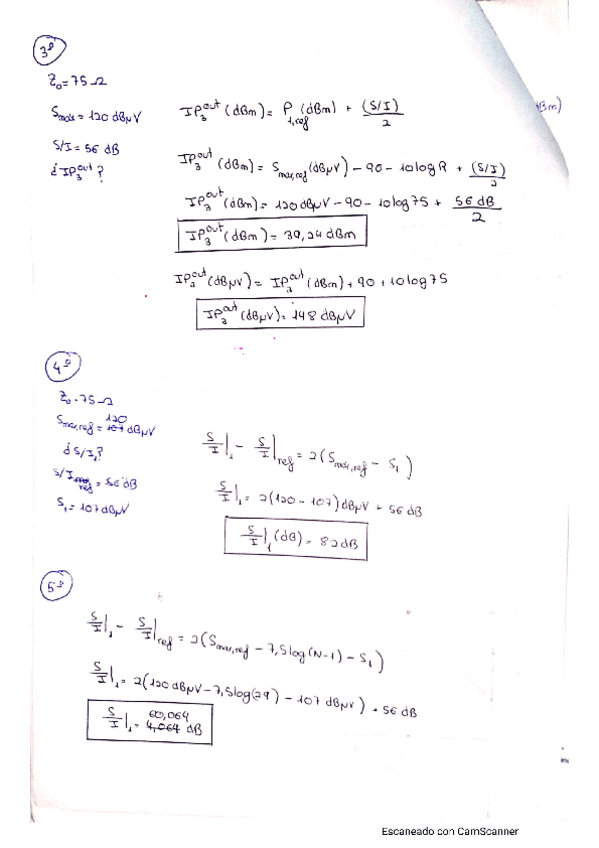 3º
Z₀ = 75 Ω
Smáx = 120 dBμV
S/I = 56 dB
¿IP₃ᵒᵘᵗ?
IP₃ᵒᵘᵗ (dBm) = P₁,ref (dBm) + (S/I)/2
Bm)
IP₃ᵒᵘᵗ (dBm) = Smax,ref (dBμV) - 90 - 10 log R + (S/I)/2
IP₃ᵒᵘᵗ (dBm) = 120 dBμV - 90 - 10 log 75 + 56 dB/2
IP₃ᵒᵘᵗ (dBm) = 39,24 dBm
IP₃ᵒᵘᵗ (dBμV) = IP₃ᵒᵘᵗ (dBm) + 90 + 10 log 75
IP₃ᵒᵘᵗ (dBμV) = 148 dBμV
4º
Z₀ = 75 Ω
Smax,ref = 120 107 dBμV
¿S/I₁?
S/I ref = 56 dB
S₁ = 107 dBμV
S/I|₁ - S/I|ref = 2(Smáx,ref - S₁)
S/I|₁ = 2(120 - 107) dBμV + 56 dB
S/I|₁ (dB) = 82 dB
5º
S/I|₁ - S/I|ref = 2(Smax,ref - 7,5 log(N-1) - S₁)
S/I|₁ = 2(120 dBμV - 7,5 log(29) - 107 dBμV) + 56 dB
S/I|₁ = 60,064 4,064 dB
Escaneado con CamScanner